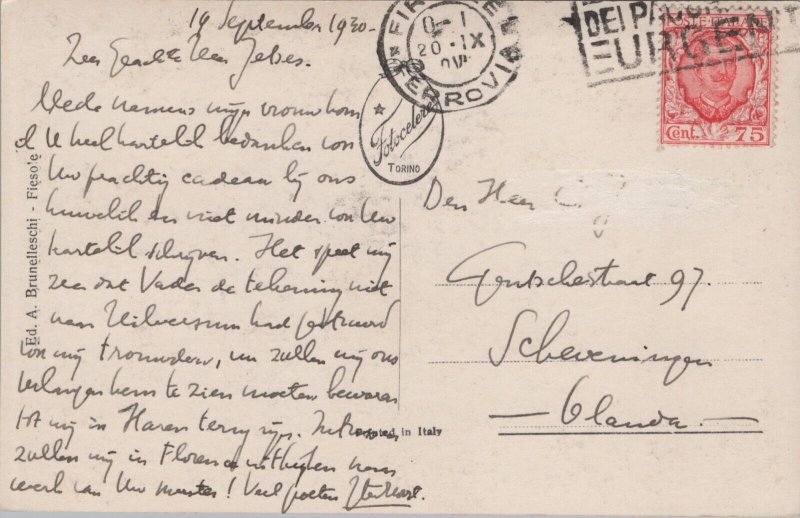 19 September 1930.
Zeer Geachte Heer
Mede namens mijn vrouw kom
ik U heel hartelijk bedanken voor
Uw prachtig cadeau bij ons
huwelijk en niet minder voor Uw
hartelijk schrijven. Het speet mij
zeer dat Vader de tekening niet
naar Hilversum had gestuurd
voor mijn trouwdag, nu zullen wij ons
verlangen hem te zien moeten bewaren
tot wij in Haren terug zijn. Intussen
zullen wij in Florence uitkijken naar
werk van Uw meester! Veel groeten
Ed. A. Brunelleschi - Fiesole
FERROVIA
20 · IX
Fotocelere
TORINO
URGENT
POSTE ITALIANE
Cent. 75
Den Heer
97.
Scheveningen
Olanda.
Printed in Italy